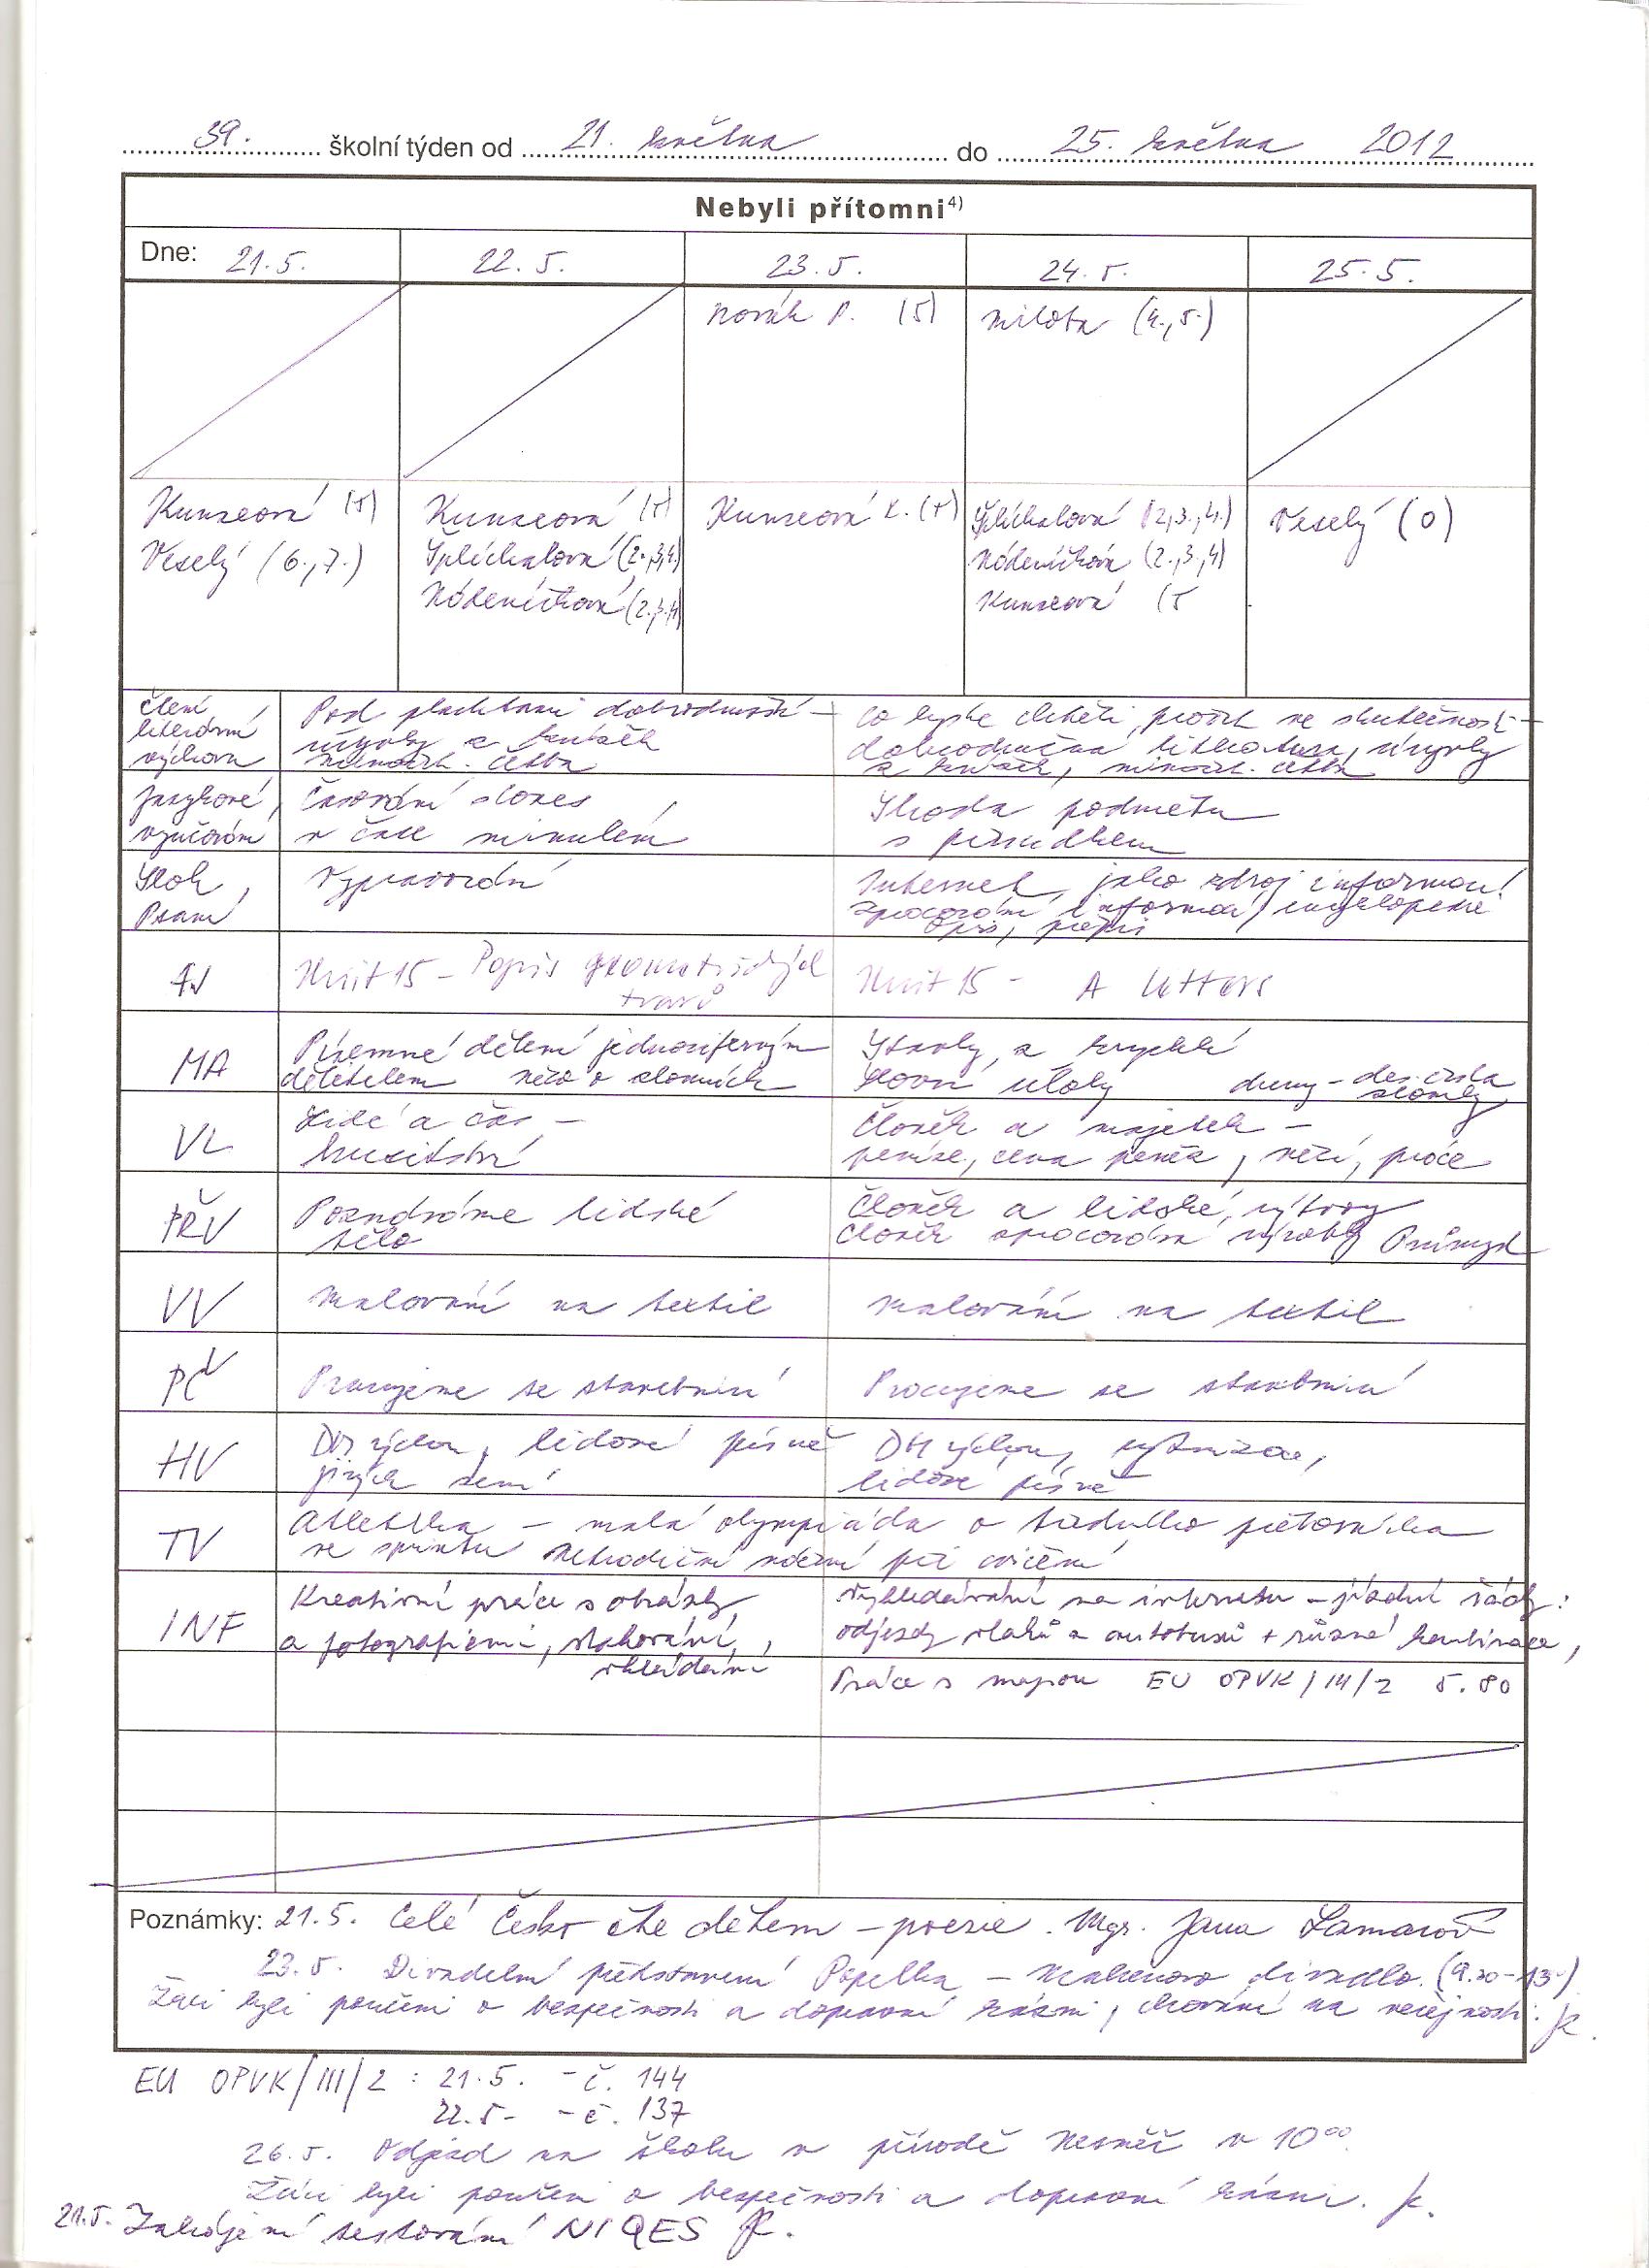 39. školní týden od 21. května do 25. května 2012
Nebyli přítomni4)
Dne: 21.5. 22.5. 23.5. 24.5. 25.5.
Novák P. (5) Milota (4., 5.)
Kunzeová (5) Kunzeová (5) Kunzeová K. (5) Šplíchalová (2,3.,4.) Veselý (0)
Veselý (6.,7.) Šplíchalová (2.,3,4.) (2.,3.,4)
(2.,3.4) Kunzeová (5
Čtení Pod plachtami dobrodružství – Co byste chtěli prožít ve skutečnosti –
literární úryvky z knížek dobrodružná literatura, úryvky
výchova mimočít. četba z knížek, mimočít. četba
Jazykové Časování sloves Shoda podmětu
vyučování v čase minulém s přísudkem
Sloh, Vypravování Internet jako zdroj informací
Psaní zpracování informací, encyklopedie
opis, přepis
AJ Unit 15 – Popis geometrických Unit 15 – A letters
tvarů
MA Písemné dělení jednociferným Stavby z krychlí
dělitelem něco o zlomcích Slovní úlohy druny – des. čísla
zlomky
VL Lidé a čas – Člověk a majetek –
husitství peníze, cena peněz, věcí, práce
PŘV Poznáváme lidské Člověk a lidské výtvory
tělo Člověk zpracovává výrobky Průmysl
VV Malování na textil Malování na textil
PČ Pracujeme se stavebnicí Pracujeme se stavebnicí
HV DH výchov, lidové písně DH výchov, rytmizace,
jiných zemí lidové písně
TV Atletika – malá olympiáda o titul
ve sprintu Metodické vedení při cvičení
INF Kreativní práce s obrázky Vyhledávání na internetu – jízdní řády:
a fotografiemi, stahování, odjezdy vlaků a autobusů + různé kombinace,
vkládání Práce s mapou EU OPVK/III/2 5.80
Poznámky: 21.5. Celé Česko čte dětem – poezie. Mgr. Jana
23.5. Divadelní představení Popelka – Mahenovo divadlo. (9.30–13)
Žáci byli poučeni o bezpečnosti a dopravní kázni, chování na veřejnosti.
EU OPVK/III/2 : 21.5. – č. 144
22.5 – č. 137
26.5. Odjezd na školu v přírodě Nesměř v 10 00.
Žáci byli poučeni o bezpečnosti a dopravní kázni.
21.5. Zahájení testování NIQES